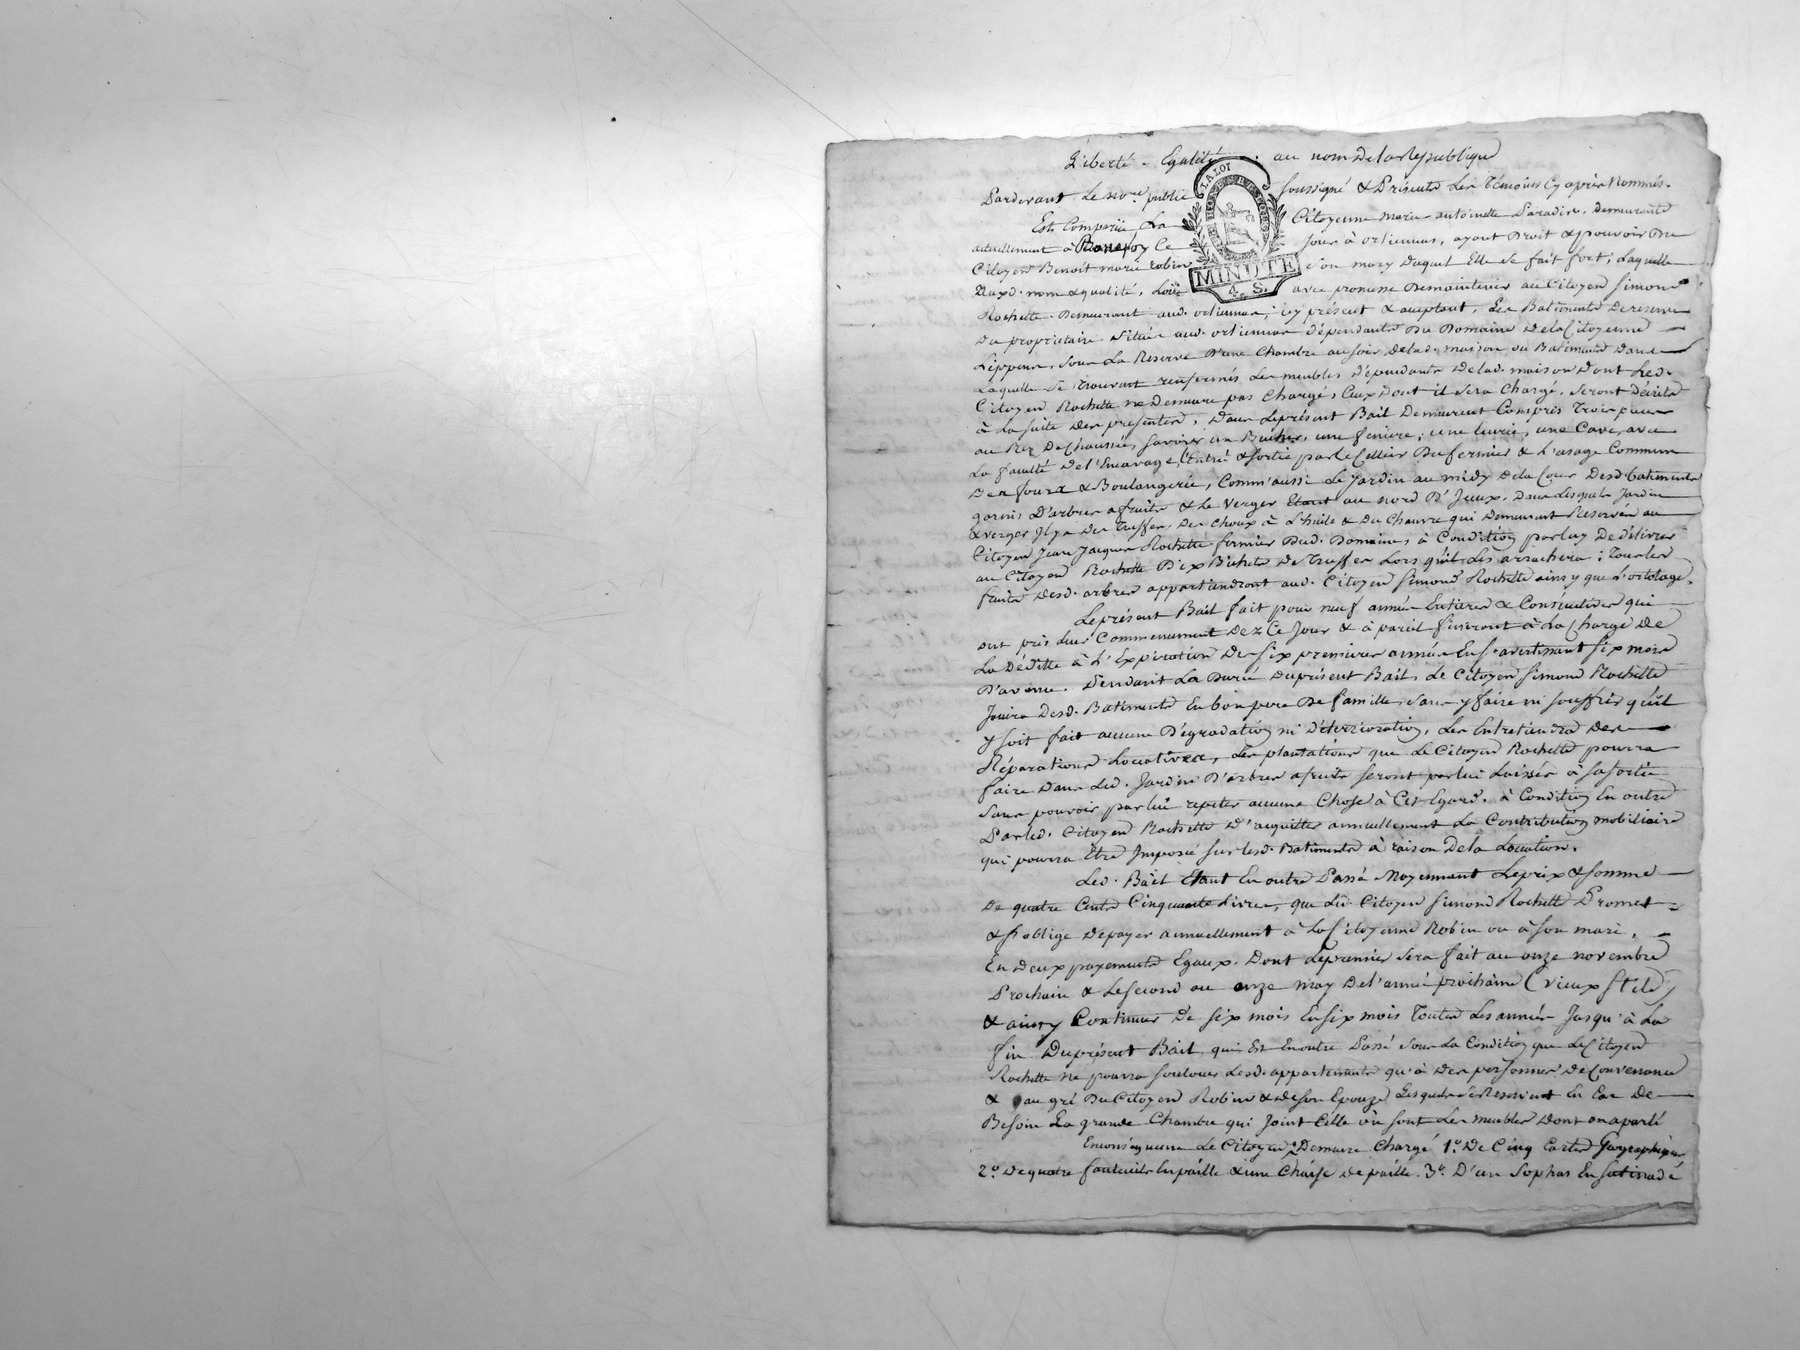 Liberté - Egalité . au nom de la Republique
LA LOI
MINUTE
4. S.
Pardevant Le no.re public soussigné & Présents Les Témoins Cy après Nommés.
Est Comparüe La Citoyenne marie antoinette Paradis, demeurante
actuellement à Ce jour à ortiennas, ayant Droit & pouvoir Du
Citoyen Benoit marie robin son mary Duquel Elle se fait fort; Laquelle
auxd. nom & qualité, Loüe avec promesse De maintenir au Citoyen Simond
Rochette Demeurant aud. ortiennas, icy présent & aceptant, Les Batiments De reserve
Du propriétaire situés aud. ortiennas dépendants Du Domaine De la Citoyenne
sous La Reserve D'une Chambre au soir De lad. maison ou Batiments Dans
Laquelle se trouvent renfermés Les meubles dépendants De lad. maison Dont Led.
Citoyen Rochette ne Demeure pas Chargé, Ceux Dont il Sera Chargé, seront Décrits
à La suite Des presentes, Dans Le présent Bail Demeurent Compris Trois pieces
au Rez De Chaussée, savoir un Bucher, une feniere, une Ecurie, une Cave, avec
La faculté De l'Encavage, l'Entrée & sortie par le Cellier Du fermier & L'usage Commun
Des fours & Boulangerie, Comm'aussi Le Jardin au midy De la Cour Desd. Batiments
garnis D'arbres a fruits & Le Verger Etant au nord D'Iceux, Dans Lesquels Jardin
& verger Il y a Des Truffes, Des Choux à L'huile & Du Chanvre qui Demeurent Reservés au
Citoyen Jean Jacques Rochette fermier Dud. Domaine, à Condition par luy De délivrer
au Citoyen Rochette Dix Bichets De Truffes Lors qu'il Les arrachera; Tous les
fruits Desd. arbres appartiendront aud. Citoyen Simond Rochette ainsy que L'ortolage.
Le présent Bail fait pour neuf années Entieres & Consécutives qui
ont pris leur Commencement Dez Ce Jour & à pareil finiront à La Charge De
La Déditte à L'Expiration Des six premieres années En S'avertissant six mois
D'avance. Pendant La Durée Du présent Bail, Le Citoyen Simond Rochette
Jouira Desd. Batiments En bon pere De famille, sans y faire ni souffrir qu'il
y soit fait aucune Dégradation ni Détérioration, Les Entretiendra Des
Réparations Locatives, Les plantations que Le Citoyen Rochette pourra
faire Dans Led. Jardin D'arbres a fruits seront par lui Laissées à sa sortie
sans pouvoir par lui repeter aucune Chose à Cet Egard. à Condition En outre
Par led. Citoyen Rochette D'acquitter annuellement La Contribution mobiliaire
qui pourra Etre Imposée sur lesd. Batiments à raison De la Location.
Led. Bail Etant En outre Passé Moyennant Le prix & somme
De quatre Cents Cinquante Livres, que Led. Citoyen Simond Rochette Promet
& s'oblige De payer annuellement à La Citoyenne Robin ou à son mari,
En Deux payements Egaux, Dont Le premier sera fait au onze novembre
Prochain & Le second au onze may De l'année prochaine (vieux stile)
& ainsy Continuer De six mois En six mois Toutes Les années Jusqu'à La
fin Du présent Bail, qui Est En outre Passé sous La Condition que Le Citoyen
Rochette ne pourra souloüer Lesd. appartements qu'à Des personnes De Convenance
& au gré Du Citoyen Robin & de son Epouze Lesquels se Reservent En Cas De
Besoin La grande Chambre qui Joint Celle où sont Les meubles Dont on a parlé
En conséquence Le Citoyen Demeure Chargé 1.º De Cinq Cartes Geographiques
2.º De quatre fauteuils En paille & une Chaise de paille. 3.º D'un Sophas En Satinade